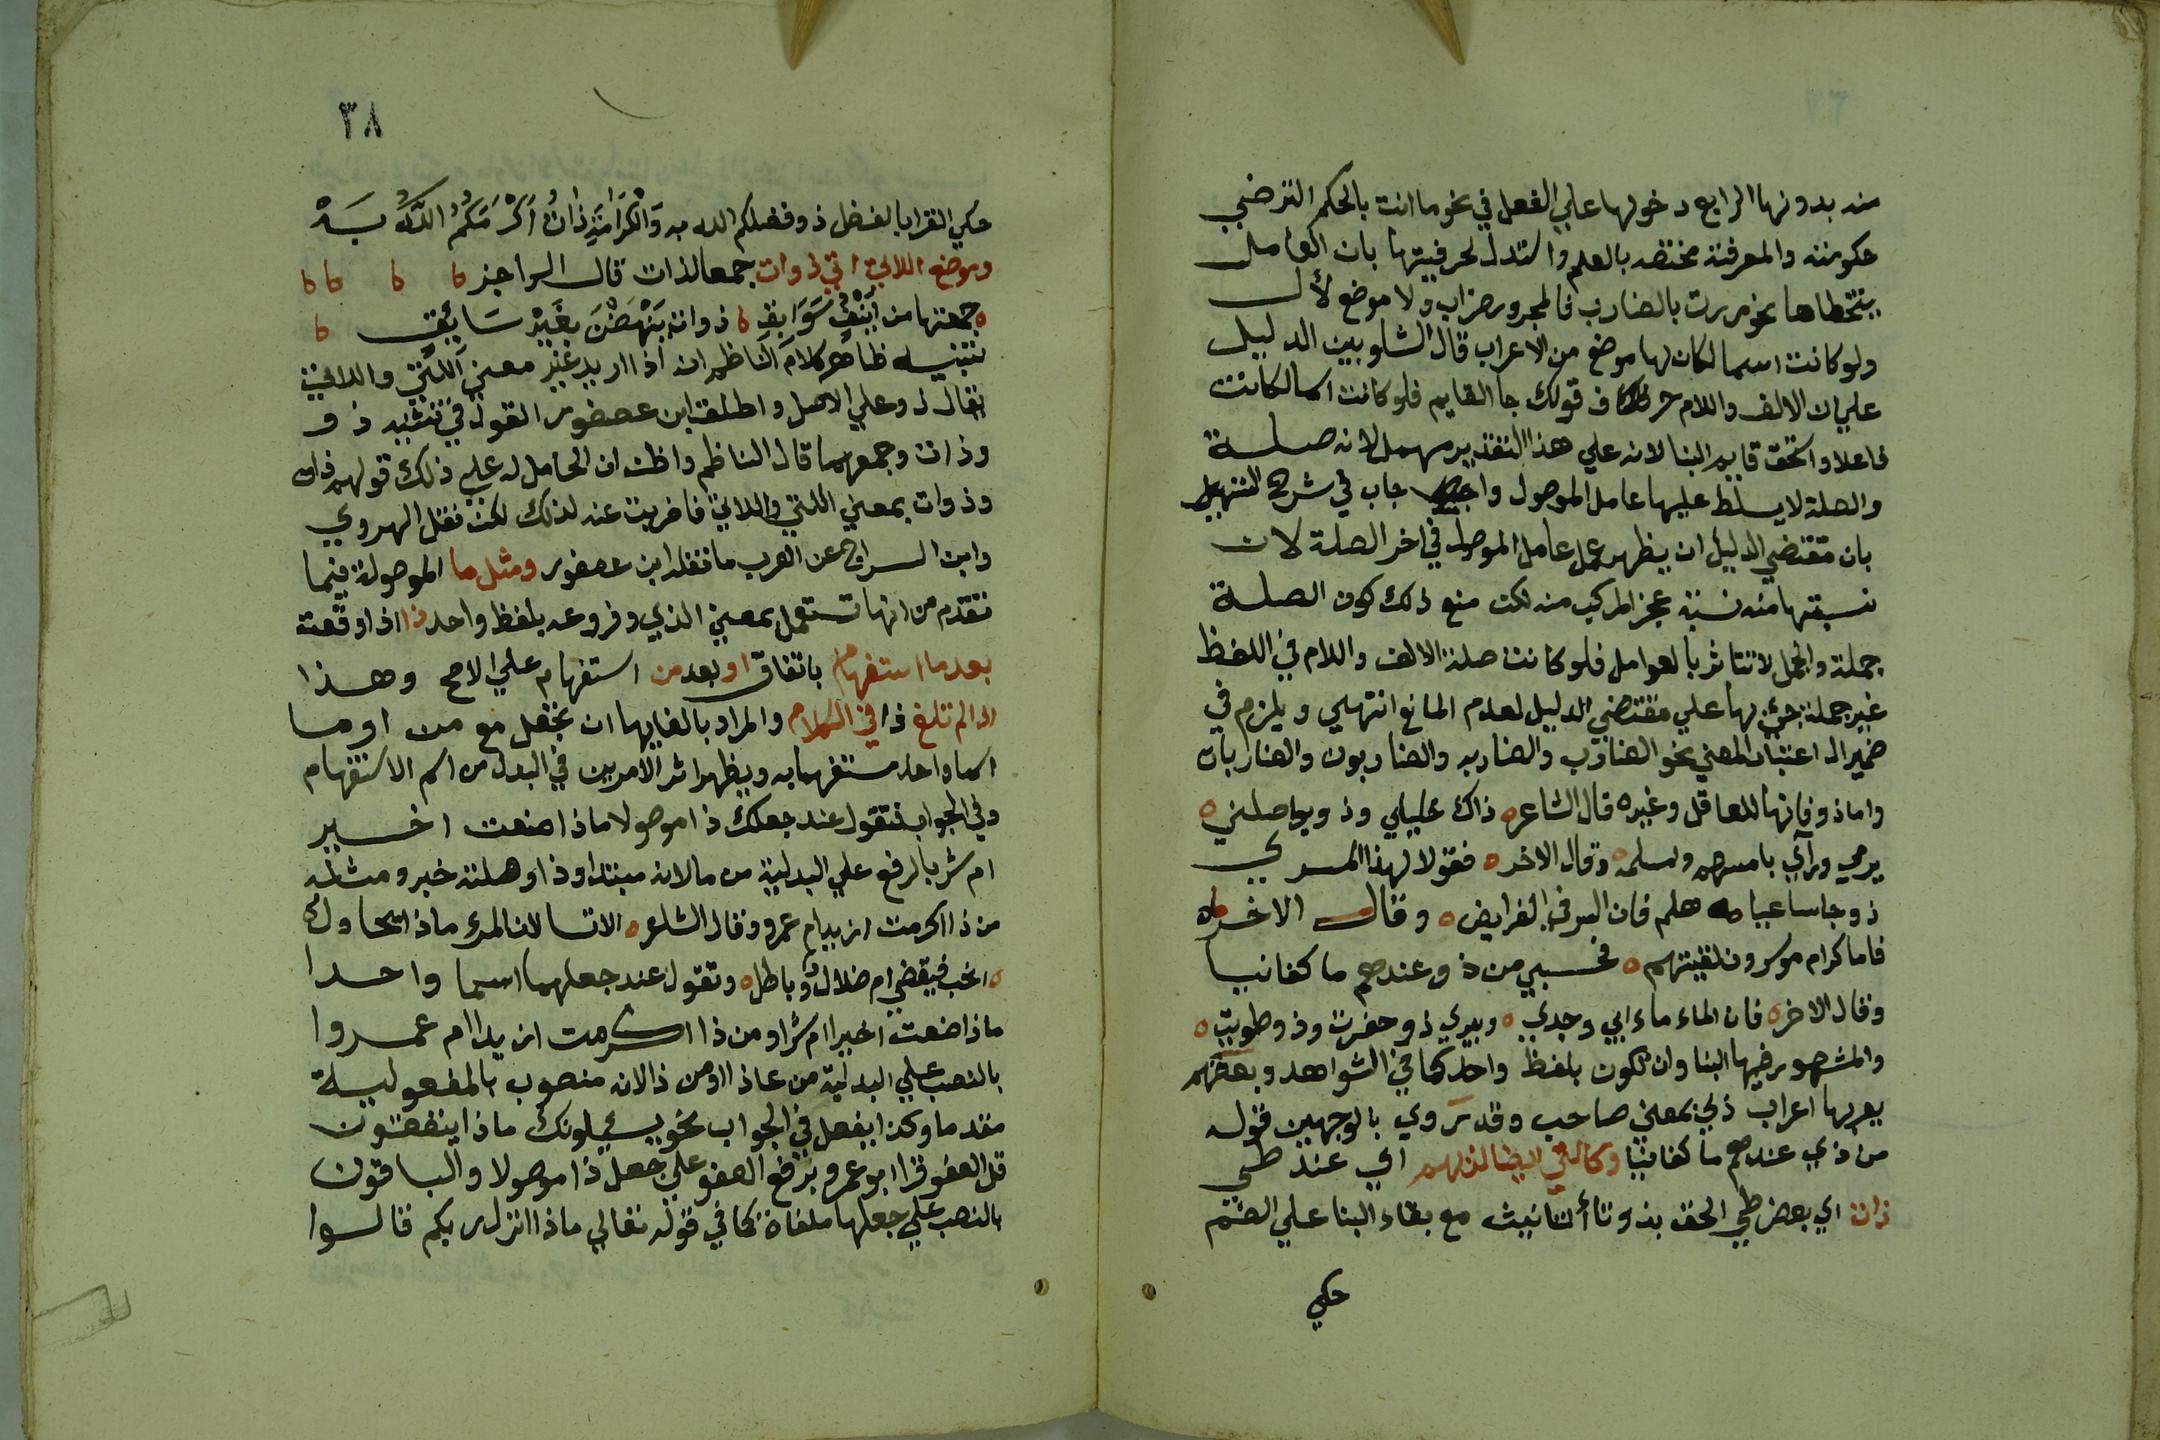 منه بدونها الرابع دخولها علي الفعل في نحو ما انت بالحكم الترضي
حكومته والمعرفة مختصه بالعلم واستدل لحرفيتها بان العامل
يتخطاها نحو مررت بالضارب فالمجرور ضارب ولا موضع لأل
ولو كانت اسما لكان لها موضع من الاعراب قال الشلوبين الدليل
علي ان الالف واللام حرف قولك جا القايم فلو كانت اسما لكانت
فاعلا واستحق قايم البنا لانه علي هذا التقدير مهمل لانه صلة
والصلة لا يسلط عليها عامل الموصول واجاب في شرح التسهيل
بان مقتضي الدليل ان يظهر عمل عامل الموصول في اخر الصلة لان
نسبتها منه نسبة عجز المركب منه لكن منع ذلك كون الصلة
جملة والجمل لا تتاثر بالعوامل فلو كانت صلة الالف واللام في اللفظ
غير جملة جئ بها علي مقتضي الدليل لعدم المانع انتهي ويلزم في
ضمير ال اعتبار المعني نحو الضارب والضاربه والضاربون والضاربان
واما ذو فانها للعاقل وغيره قال الشاعر ه ذاك خليلي وذو يواصلني ه
يرمي ورآي بامسهم وامسلمه ه وقال الاخر ه فقولا لهذا المرء
ذو جا ساعيا ه هلم فان المشرفي الفرايض ه وقال الاخر ه
فاما كرام موسرون لقيتهم ه فحسبي من ذو عندهم ما كفانيا
وقال الاخر ه فان الماء ماء ابي وجدي ه وبيري ذو حفرت وذو طويت ه
والمشهور فيها البنا وان تكون بلفظ واحد كما في الشواهد وبعضهم
يعربها اعراب ذي بمعني صاحب وقد روي بالوجهين قوله
من ذي عندهم ما كفانيا وكالتي ايضا لديهم اي عند طي
ذات اي بعض طي الحق بذو تا التانيث مع بقاء البنا علي الضم
حكي
٣٨
حكي الفرا بالفضل ذو فضلكم الله به وَالْكَرَامَةِ ذَاتُ اَكْرَمَكُمُ اللَّهُ بَهْ
وموضع اللاتي اتي ذوات جمعا لذات قال الراجز
ه جمعتها من اَيْنُقٍ سَوَابِقِ ذوات يَنْهَضْنَ بِغَيْرِ سَائِقِ
تنبيه ظاهر كلام الناظم انه اذا اريد غير معني الّتي واللاتي
يقال ذو علي الاصل واطلق ابن عصفور القول في تثنيه ذو
وذات وجمعهما قال الناظم واظن ان الحامل له علي ذلك قولهم ذات
وذوات بمعني التي واللاتي فاضربت عنه لذلك لكن نقل الهروي
وابن السراج عن العرب ما نقله ابن عصفور ومثل ما الموصولة فيما
تقدم من انها تستعمل بمعني الذي وفروعه بلفظ واحد ذا اذا وقعت
بعد ما استفهام باتفاق او بعد من استفهام علي الاصح وهذا
اذا لم تلغ ذا في الكلام والمراد بالغايها ان تجعل مع من او ما
اسما واحدا مستفهما به ويظهر اثر الامرين في البدل من اسم الاستفهام
وفي الجواب فتقول عند جعلك ذا موصولا ماذا صنعت اخير
ام شر بالرفع علي البدلية من ما لانه مبتدا وذا وصلته خبر ومثله
من ذا اكرمت ازيد ام عمرو وقال الشاعر ه الا تسالان المرء ماذا يحاول
ه انحب فيقضي ام ضلال وباطل ه وتقول عند جعلهما اسما واحدا
ماذا صنعت اخيرا ام شرا ومن ذا اكرمت ازيدا ام عمروا
بالنصب علي البدلية من ماذا او من ذا لانه منصوب بالمفعولية
مقدما وكذا يفعل في الجواب نحو يسئلونك ماذا ينفقون
قل العفو قرا ابو عمرو برفع العفو علي جعل ذا موصولا والباقون
بالنصب علي جعلها ملغاة كما في قوله تعالي ماذا انزل ربكم قالوا